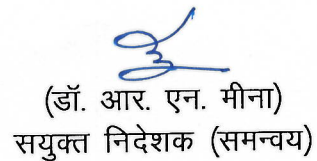 (डॉ. आर. एन. मीना)
सयुक्त निदेशक (समन्वय)